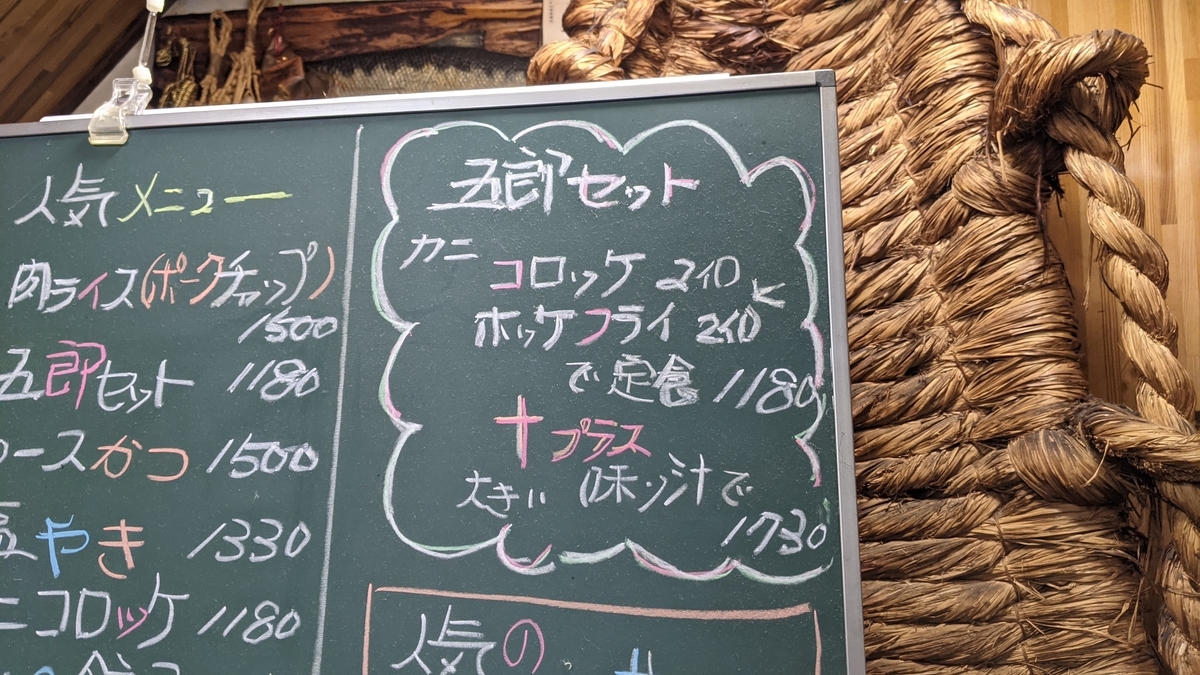 人気メニュー
肉ライス(ポークチャップ)
1500
五郎セット 1180
ロースかつ 1500
塩やき 1330
ニコロッケ 1180
五郎セット
カニ
コロッケ 2個と
ホッケフライ 2個
で定食 1180
+プラス
大きい 味ソ汁で
1730
人気の